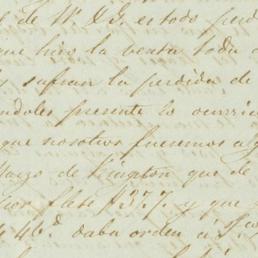 de W. & G. es todo perd
que hizo la venta toda
y sufran la perdida de
andoles presente lo ocurri
que nosotros fuesemos a
Marzo de Kingston que de
por flete $37.7. y que
46.d daba orden á S.